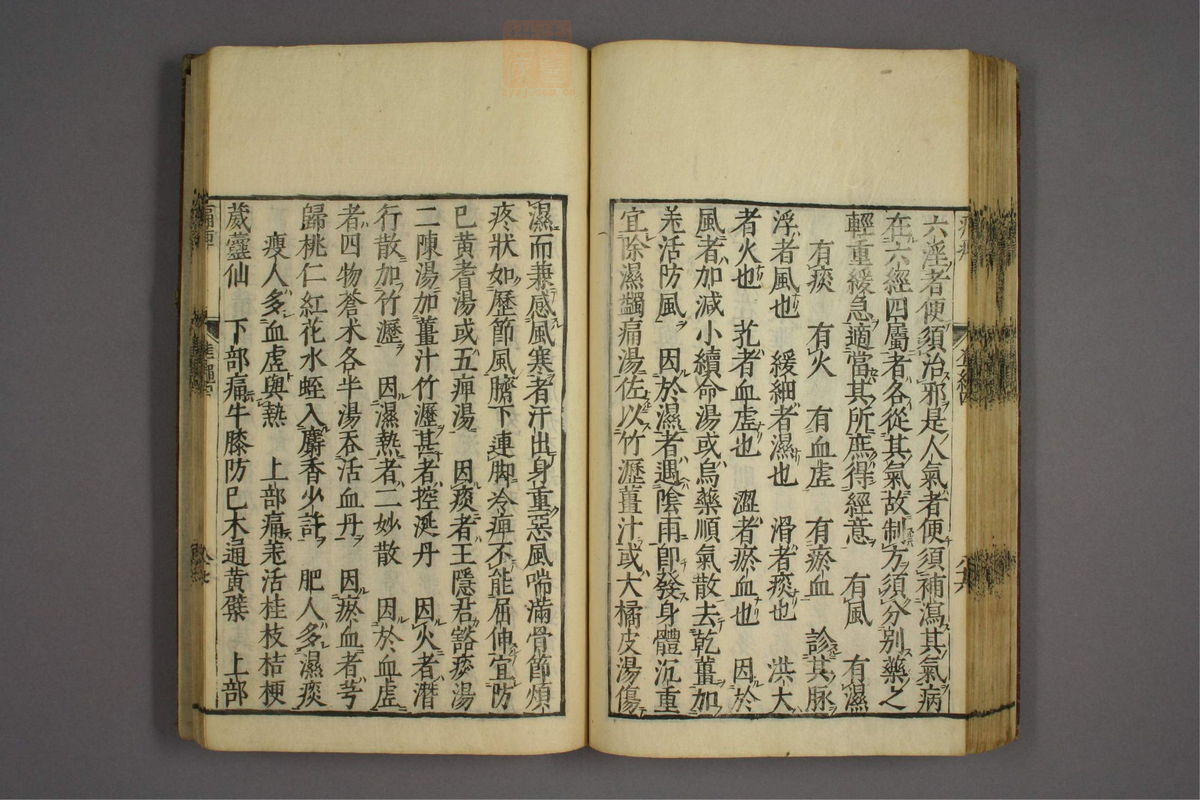 六淫者便須治邪是人氣者便須補瀉其氣病
在六經四屬者各從其氣故制方須分別藥之
輕重緩急適當其所庶得經意　有風　有濕
有痰　有火　有血虛　有瘀血　診其脉
浮者風也　緩細者濕也　滑者痰也　洪大
者火也　芤者血虛也　澀者瘀血也　因於
風者加減小續命湯或烏藥順氣散去乾薑加
羌活防風　因於濕者遇陰雨即發身體沉重
宜除濕蠲痛湯佐以竹瀝薑汁或大橘皮湯傷
濕而兼感風寒者汗出身重惡風喘滿骨節煩
疼狀如歷節風臍下連脚冷痺不能屈伸宜防
已黄耆湯或五痺湯　因痰者王隱君豁痰湯
二陳湯加薑汁竹瀝甚者控涎丹　因火者潛
行散加竹瀝　因濕熱者二妙散　因於血虛
者四物蒼术各半湯吞活血丹　因瘀血者芎
歸桃仁紅花水蛭入麝香少許　肥人多濕痰
瘦人多血虛與熱　上部痛羌活桂枝桔梗
葳靈仙　下部痛牛膝防已木通黄蘗　上部